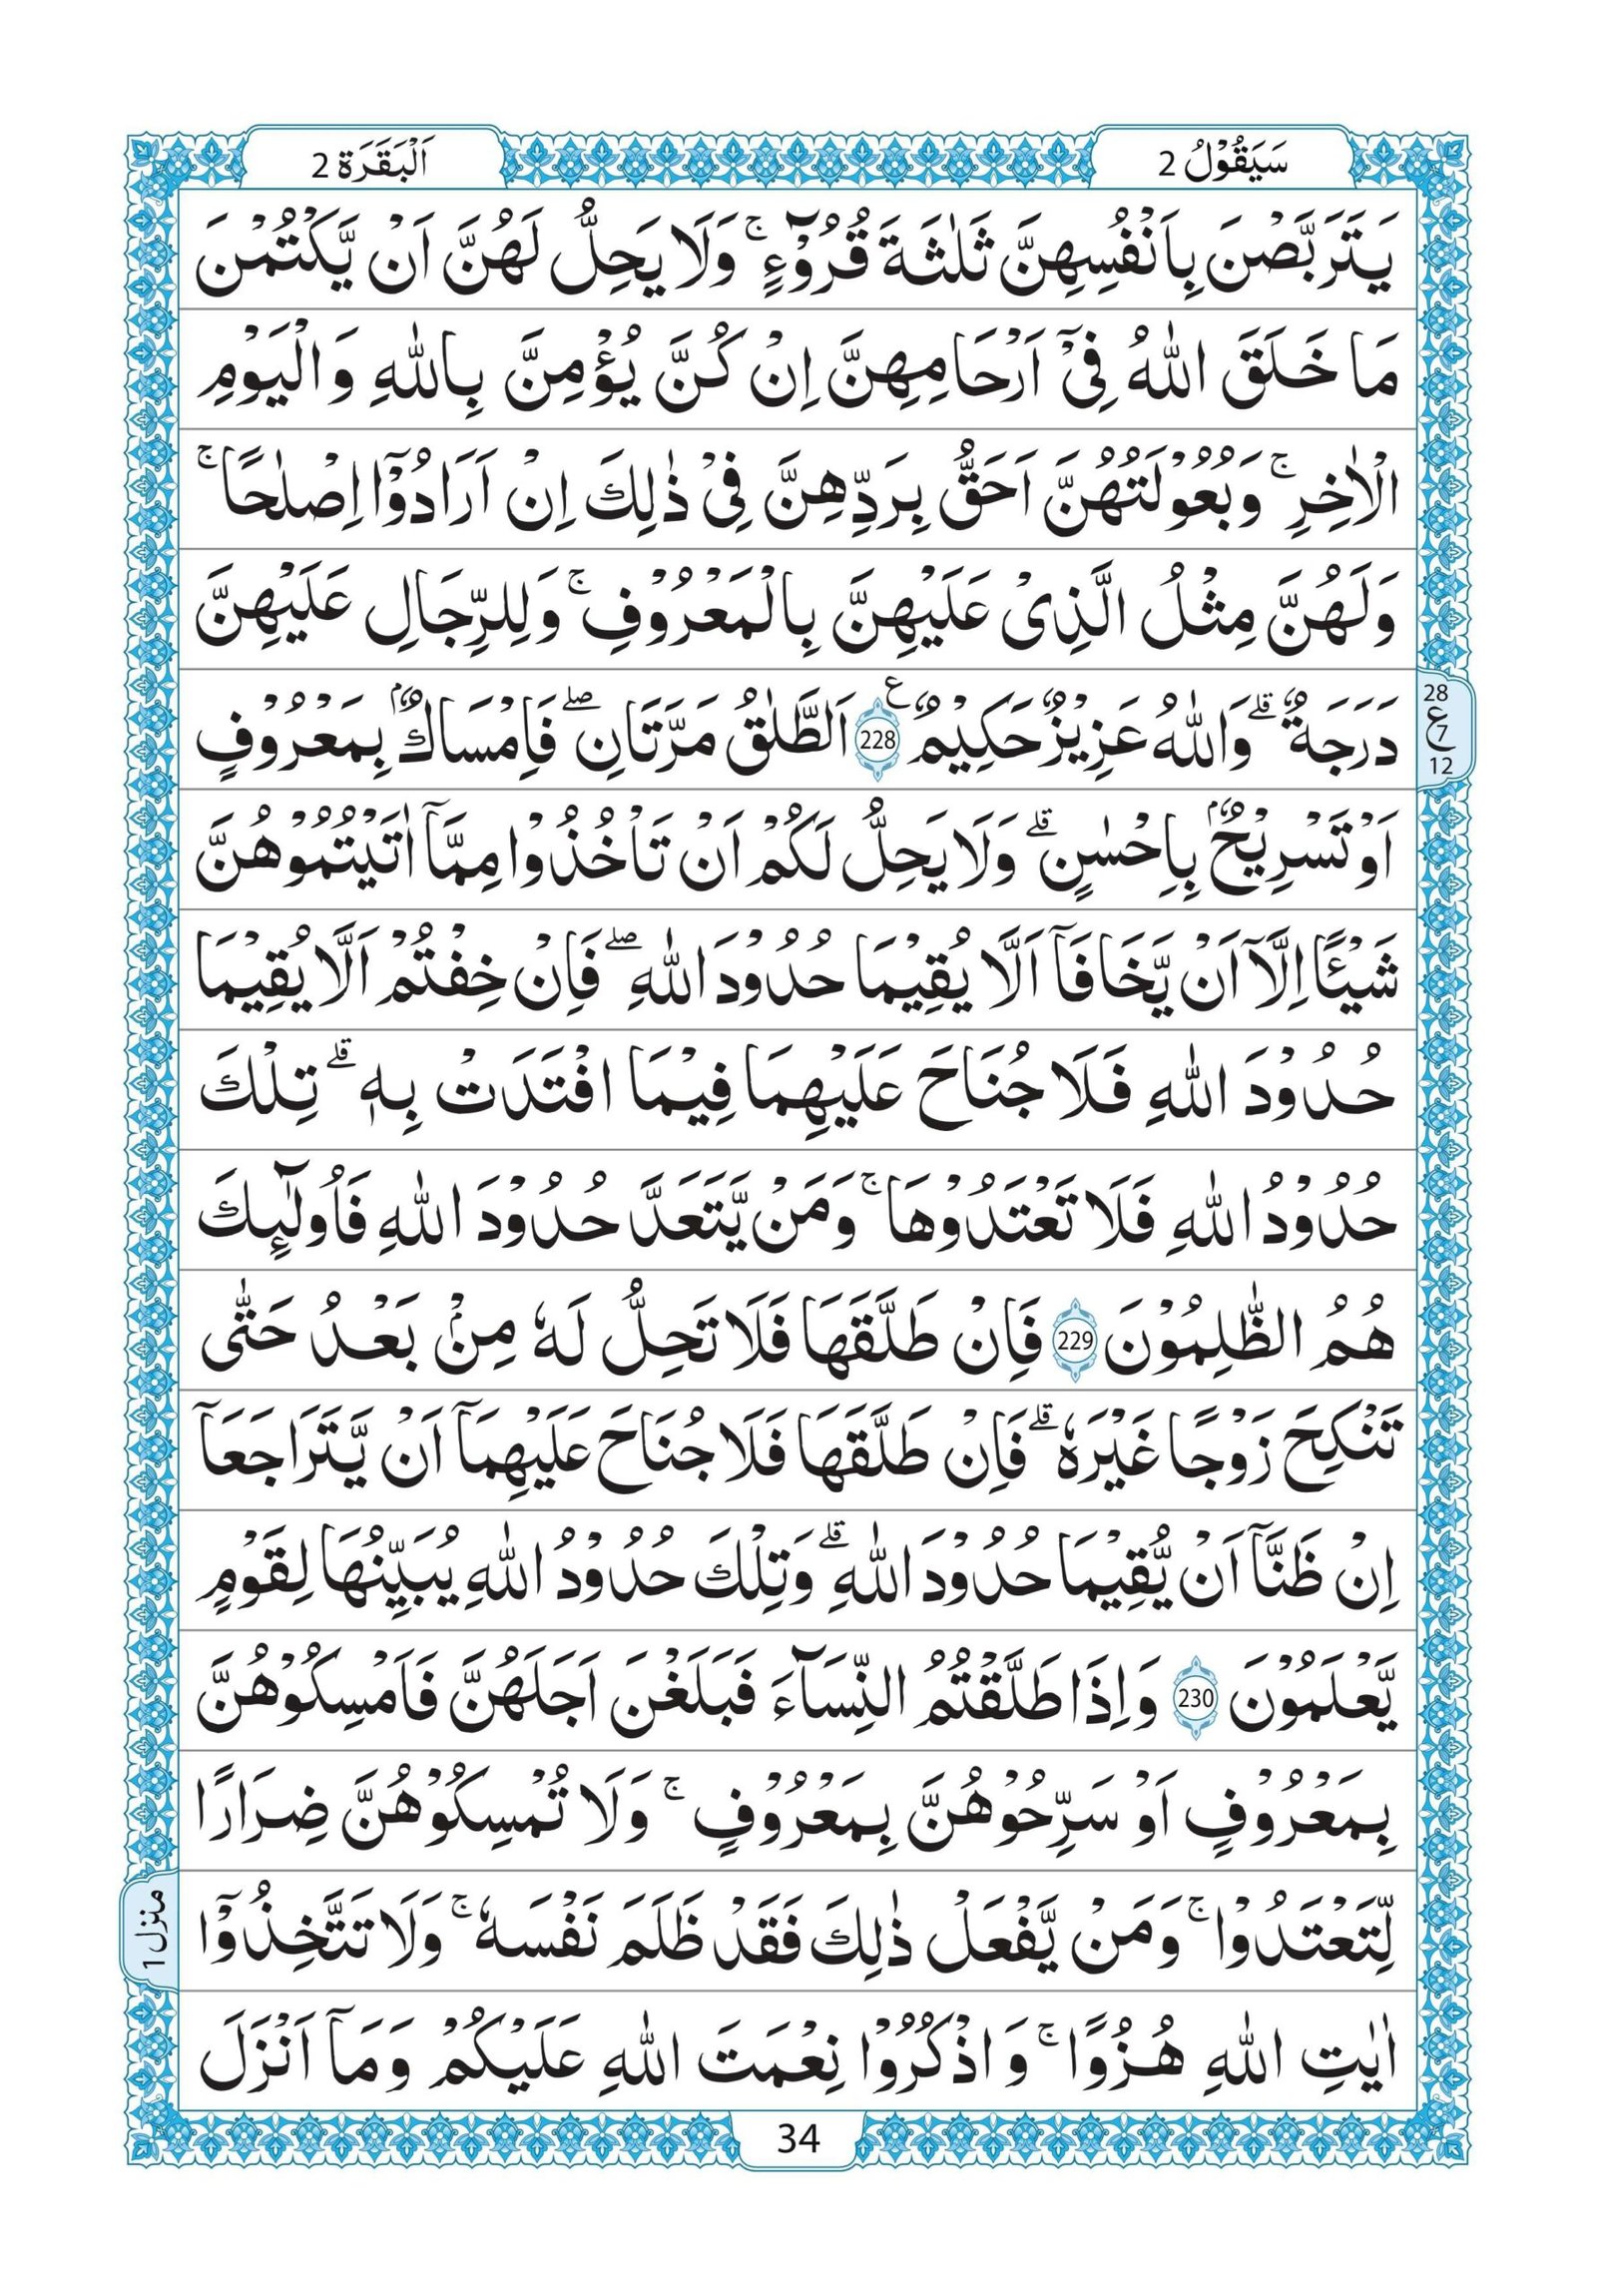 سَيَقُوْلُ 2
اَلْبَقَرَة 2
يَتَرَبَّصْنَ بِاَنْفُسِهِنَّ ثَلٰثَةَ قُرُوْٓءٍ ۚ وَلَا يَحِلُّ لَهُنَّ اَنْ يَّكْتُمْنَ
مَا خَلَقَ اللّٰهُ فِىْٓ اَرْحَامِهِنَّ اِنْ كُنَّ يُؤْمِنَّ بِاللّٰهِ وَالْيَوْمِ
الْاٰخِرِ ۚ وَبُعُوْلَتُهُنَّ اَحَقُّ بِرَدِّهِنَّ فِىْ ذٰلِكَ اِنْ اَرَادُوْٓا اِصْلٰحًا ۚ
وَلَهُنَّ مِثْلُ الَّذِىْ عَلَيْهِنَّ بِالْمَعْرُوْفِ ۚ وَلِلرِّجَالِ عَلَيْهِنَّ
دَرَجَةٌ ۗ وَاللّٰهُ عَزِيْزٌ حَكِيْمٌ ع 228 اَلطَّلٰقُ مَرَّتَانِ ۖ فَاِمْسَاكٌۢ بِمَعْرُوْفٍ
28
ع
7
12
اَوْ تَسْرِيْحٌۢ بِاِحْسٰنٍ ۗ وَلَا يَحِلُّ لَكُمْ اَنْ تَاْخُذُوْا مِمَّآ اٰتَيْتُمُوْهُنَّ
شَيْـًٔا اِلَّآ اَنْ يَّخَافَآ اَلَّا يُقِيْمَا حُدُوْدَ اللّٰهِ ۖ فَاِنْ خِفْتُمْ اَلَّا يُقِيْمَا
حُدُوْدَ اللّٰهِ فَلَا جُنَاحَ عَلَيْهِمَا فِيْمَا افْتَدَتْ بِهٖ ۗ تِلْكَ
حُدُوْدُ اللّٰهِ فَلَا تَعْتَدُوْهَا ۚ وَمَنْ يَّتَعَدَّ حُدُوْدَ اللّٰهِ فَاُولٰٓئِكَ
هُمُ الظّٰلِمُوْنَ 229 فَاِنْ طَلَّقَهَا فَلَا تَحِلُّ لَهٗ مِنْۢ بَعْدُ حَتّٰى
تَنْكِحَ زَوْجًا غَيْرَهٗ ۗ فَاِنْ طَلَّقَهَا فَلَا جُنَاحَ عَلَيْهِمَآ اَنْ يَّتَرَاجَعَآ
اِنْ ظَنَّآ اَنْ يُّقِيْمَا حُدُوْدَ اللّٰهِ ۗ وَتِلْكَ حُدُوْدُ اللّٰهِ يُبَيِّنُهَا لِقَوْمٍ
يَّعْلَمُوْنَ 230 وَاِذَا طَلَّقْتُمُ النِّسَآءَ فَبَلَغْنَ اَجَلَهُنَّ فَاَمْسِكُوْهُنَّ
بِمَعْرُوْفٍ اَوْ سَرِّحُوْهُنَّ بِمَعْرُوْفٍ ۚ وَلَا تُمْسِكُوْهُنَّ ضِرَارًا
لِّتَعْتَدُوْا ۚ وَمَنْ يَّفْعَلْ ذٰلِكَ فَقَدْ ظَلَمَ نَفْسَهٗ ۚ وَلَا تَتَّخِذُوْٓا
اٰيٰتِ اللّٰهِ هُزُوًا ۚ وَاذْكُرُوْا نِعْمَتَ اللّٰهِ عَلَيْكُمْ وَمَآ اَنْزَلَ
منزل 1
34